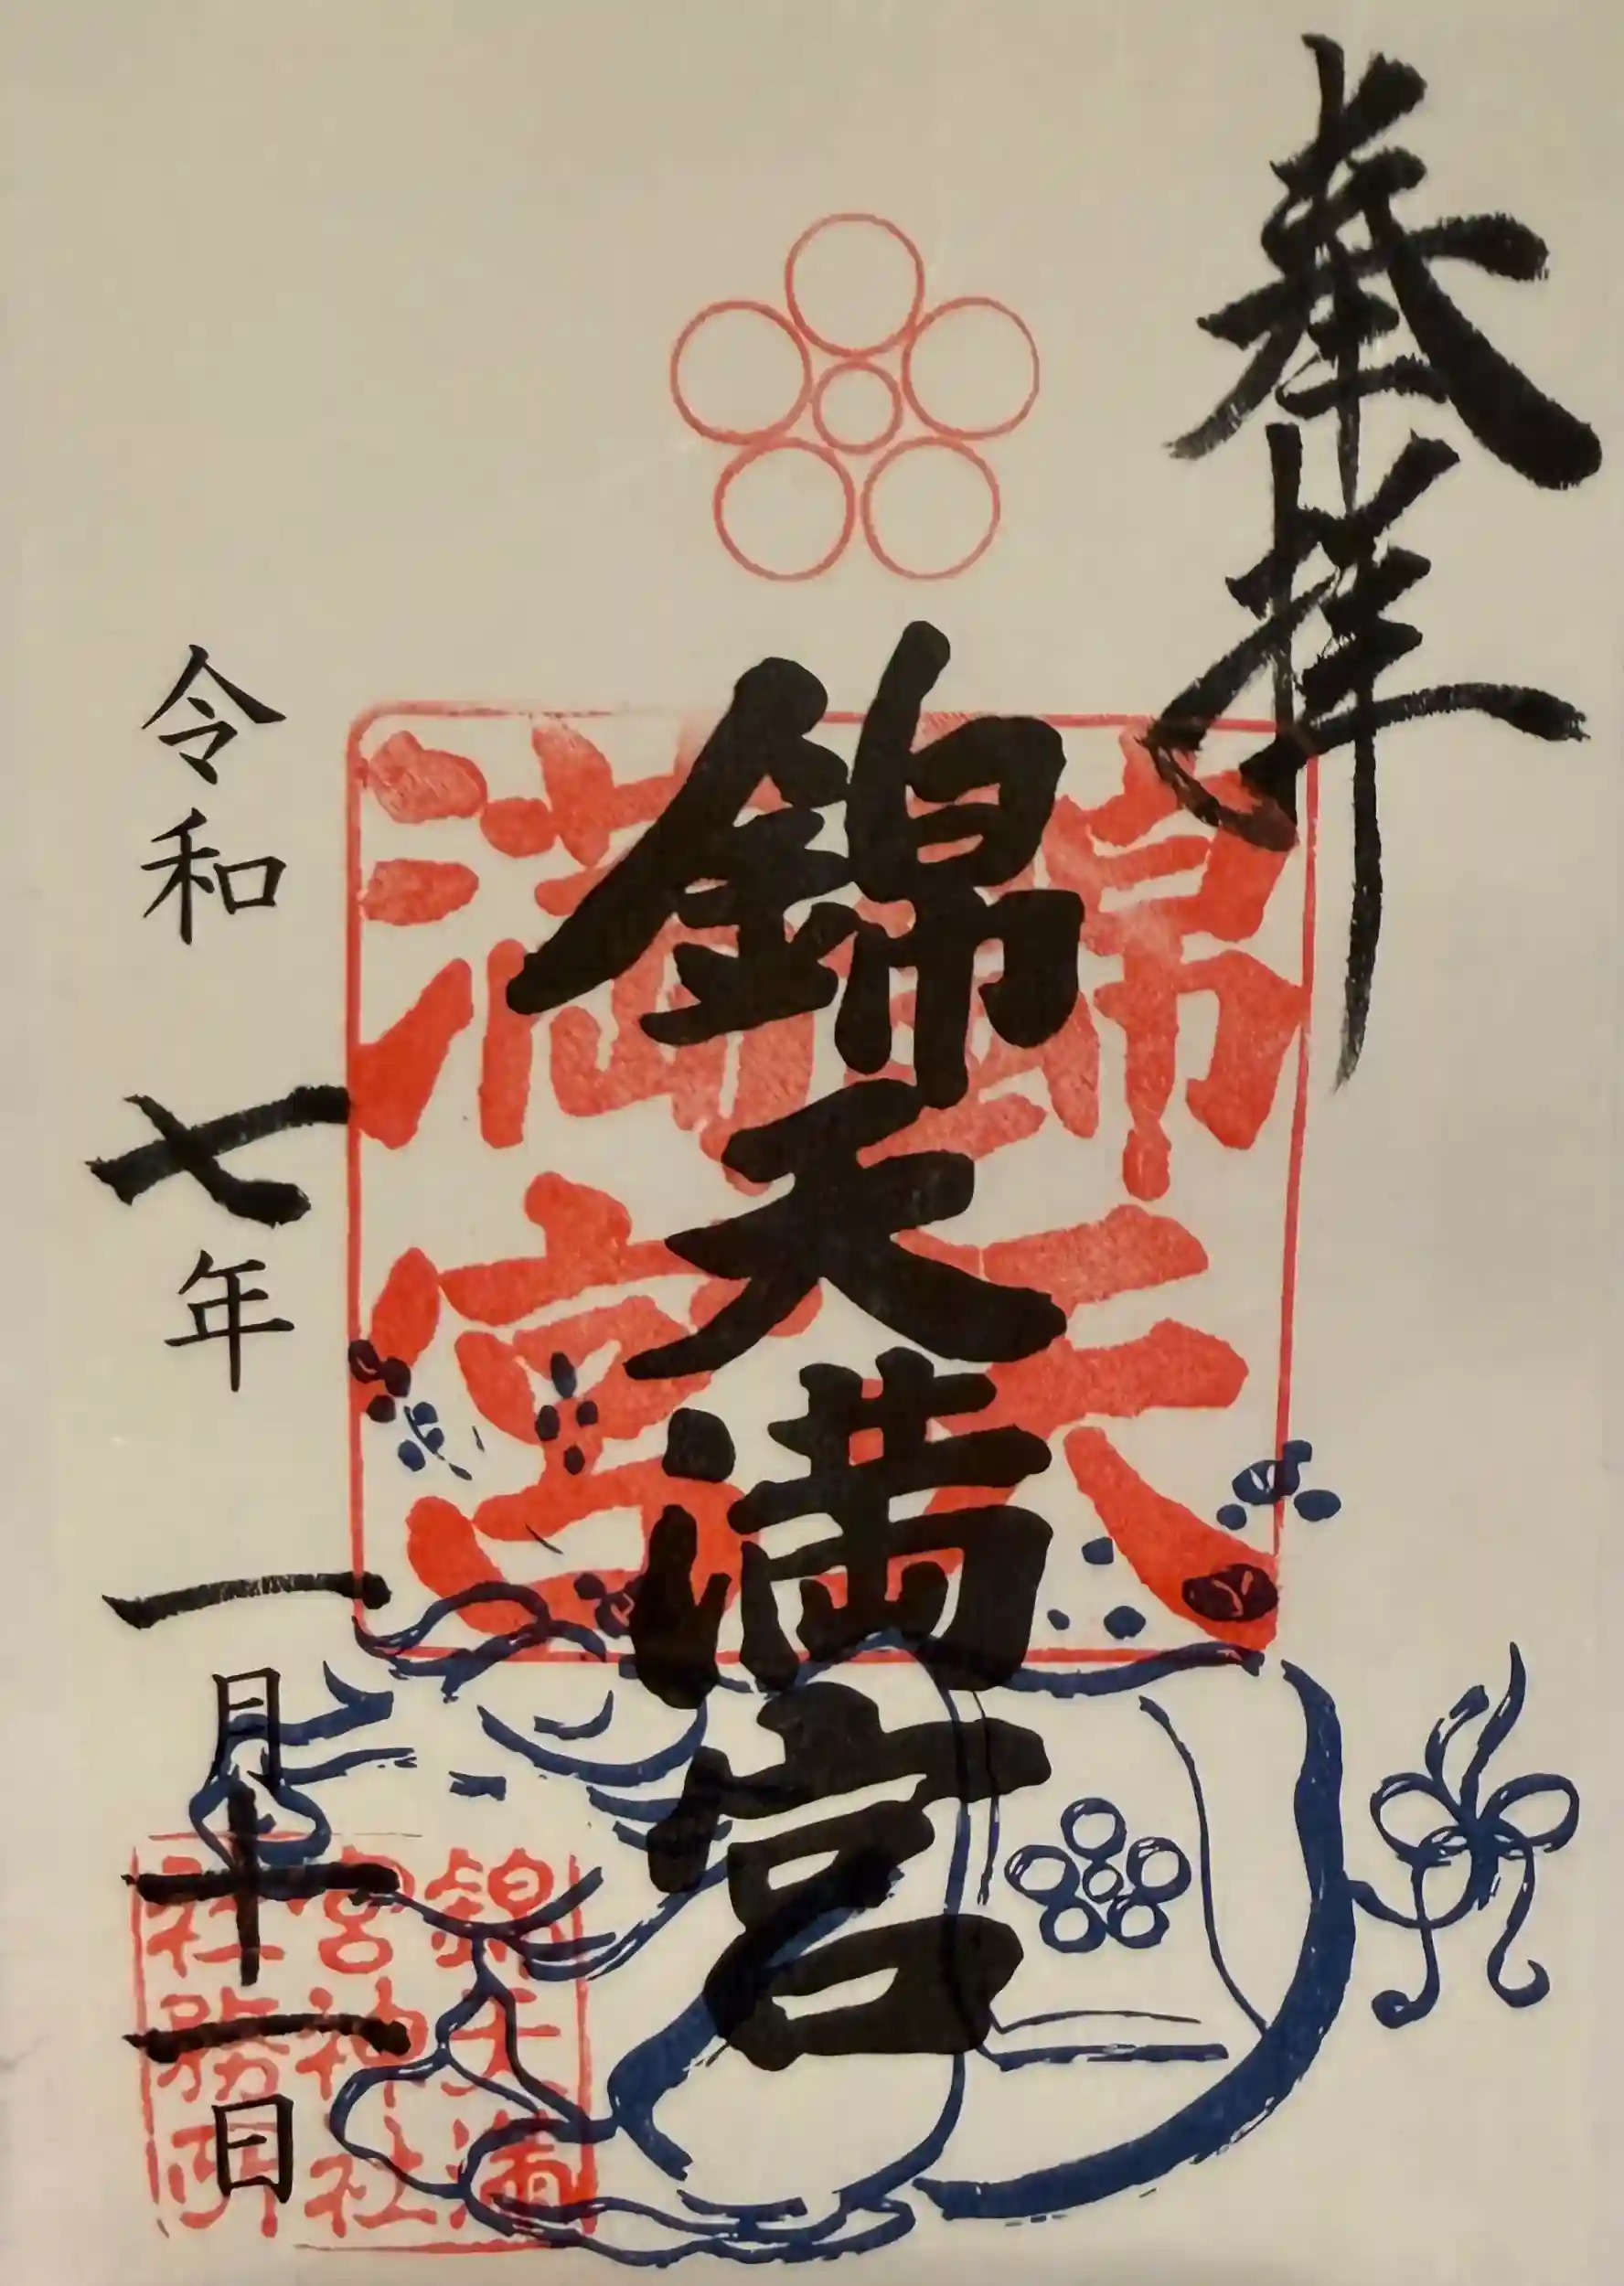 奉拝
錦天満宮
錦天満宮
令和七年一月十一日
錦天満
宮神社
社務所